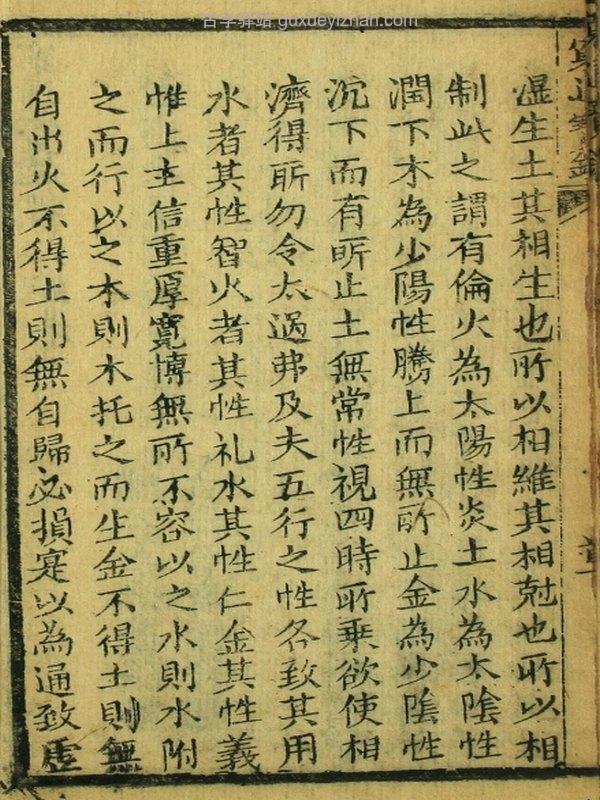 古学驿站 guxueyizhan.com
湿生土其相生也所以相維其相尅也所以相
制此之謂有倫火為太陽性炎土水為太陰性
潤下木為少陽性騰上而無所止金為少陰性
沉下而有所止土無常性視四時所乗欲使相
濟得所勿令太過弗及夫五行之性各致其用
水者其性智火者其性礼水其性仁金其性義
惟上主信重厚寛博無所不容以之水則水附
之而行以之木則木托之而生金不得土則無
自出火不得土則無自歸必損寔以為通致虛